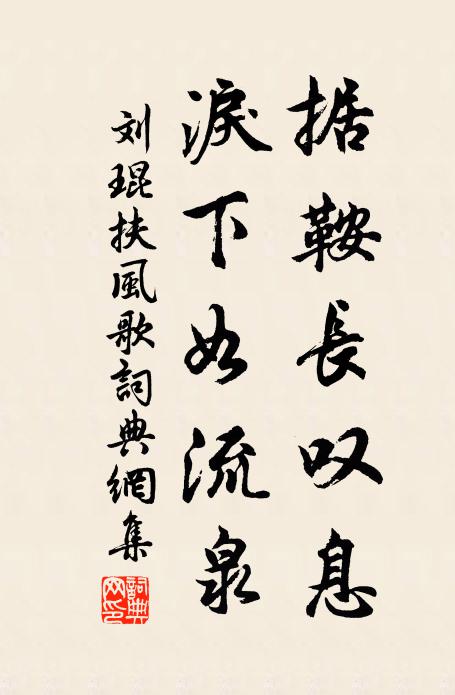 据鞍長叹息
淚下如流泉
刘琨扶風歌詞典網集
詞典网印